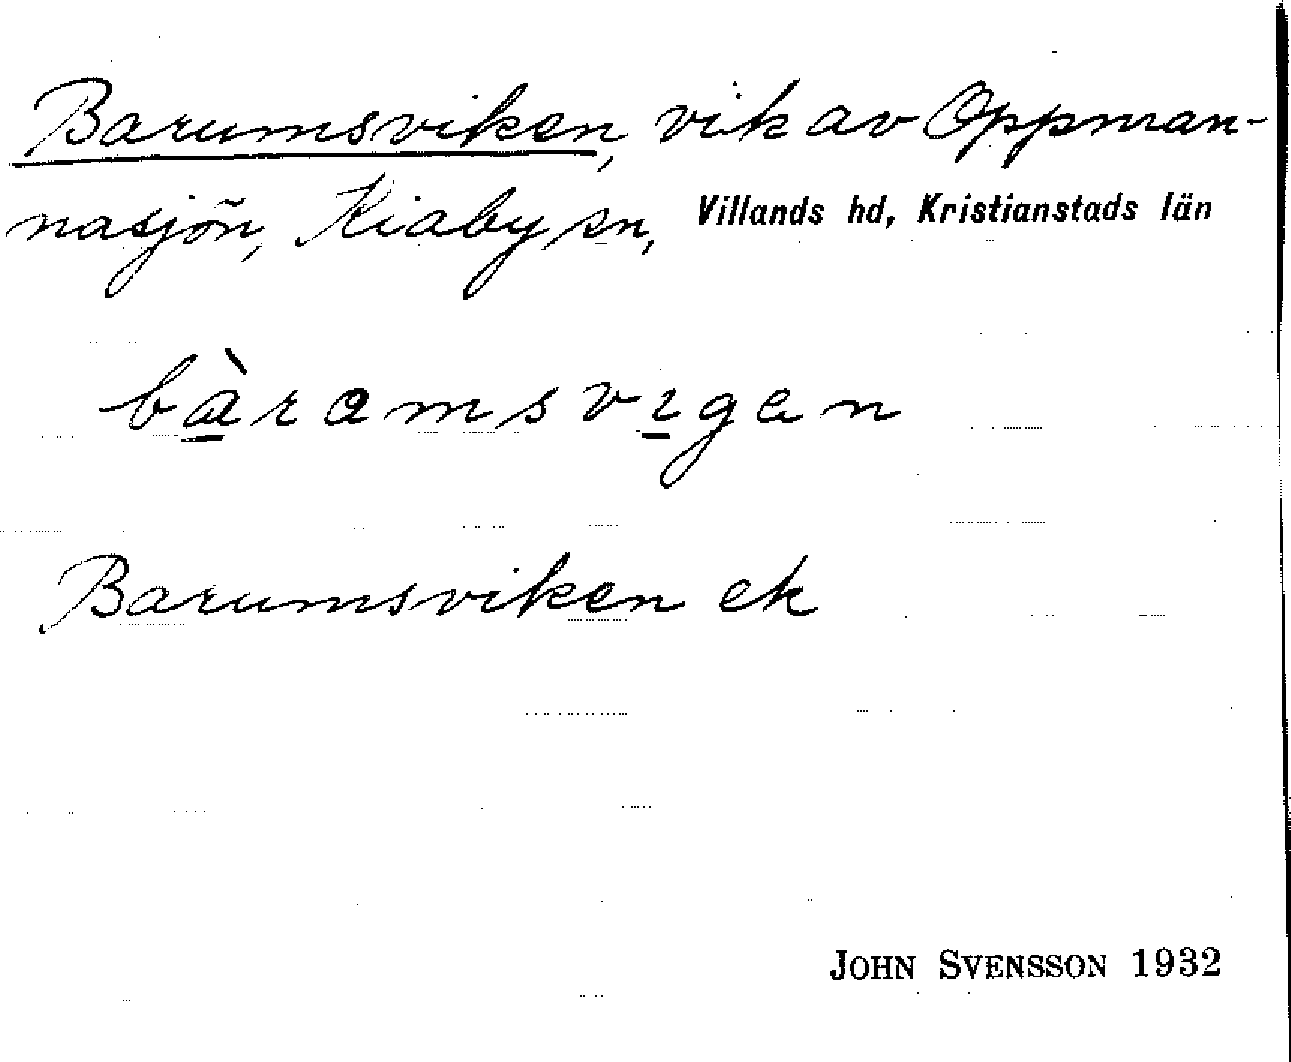 Barumsviken, vik av Oppman-
nasjön, Kiaby sn, Villands hd, Kristianstads län
bàramsvigen
Barumsviken ek
JOHN SVENSSON 1932